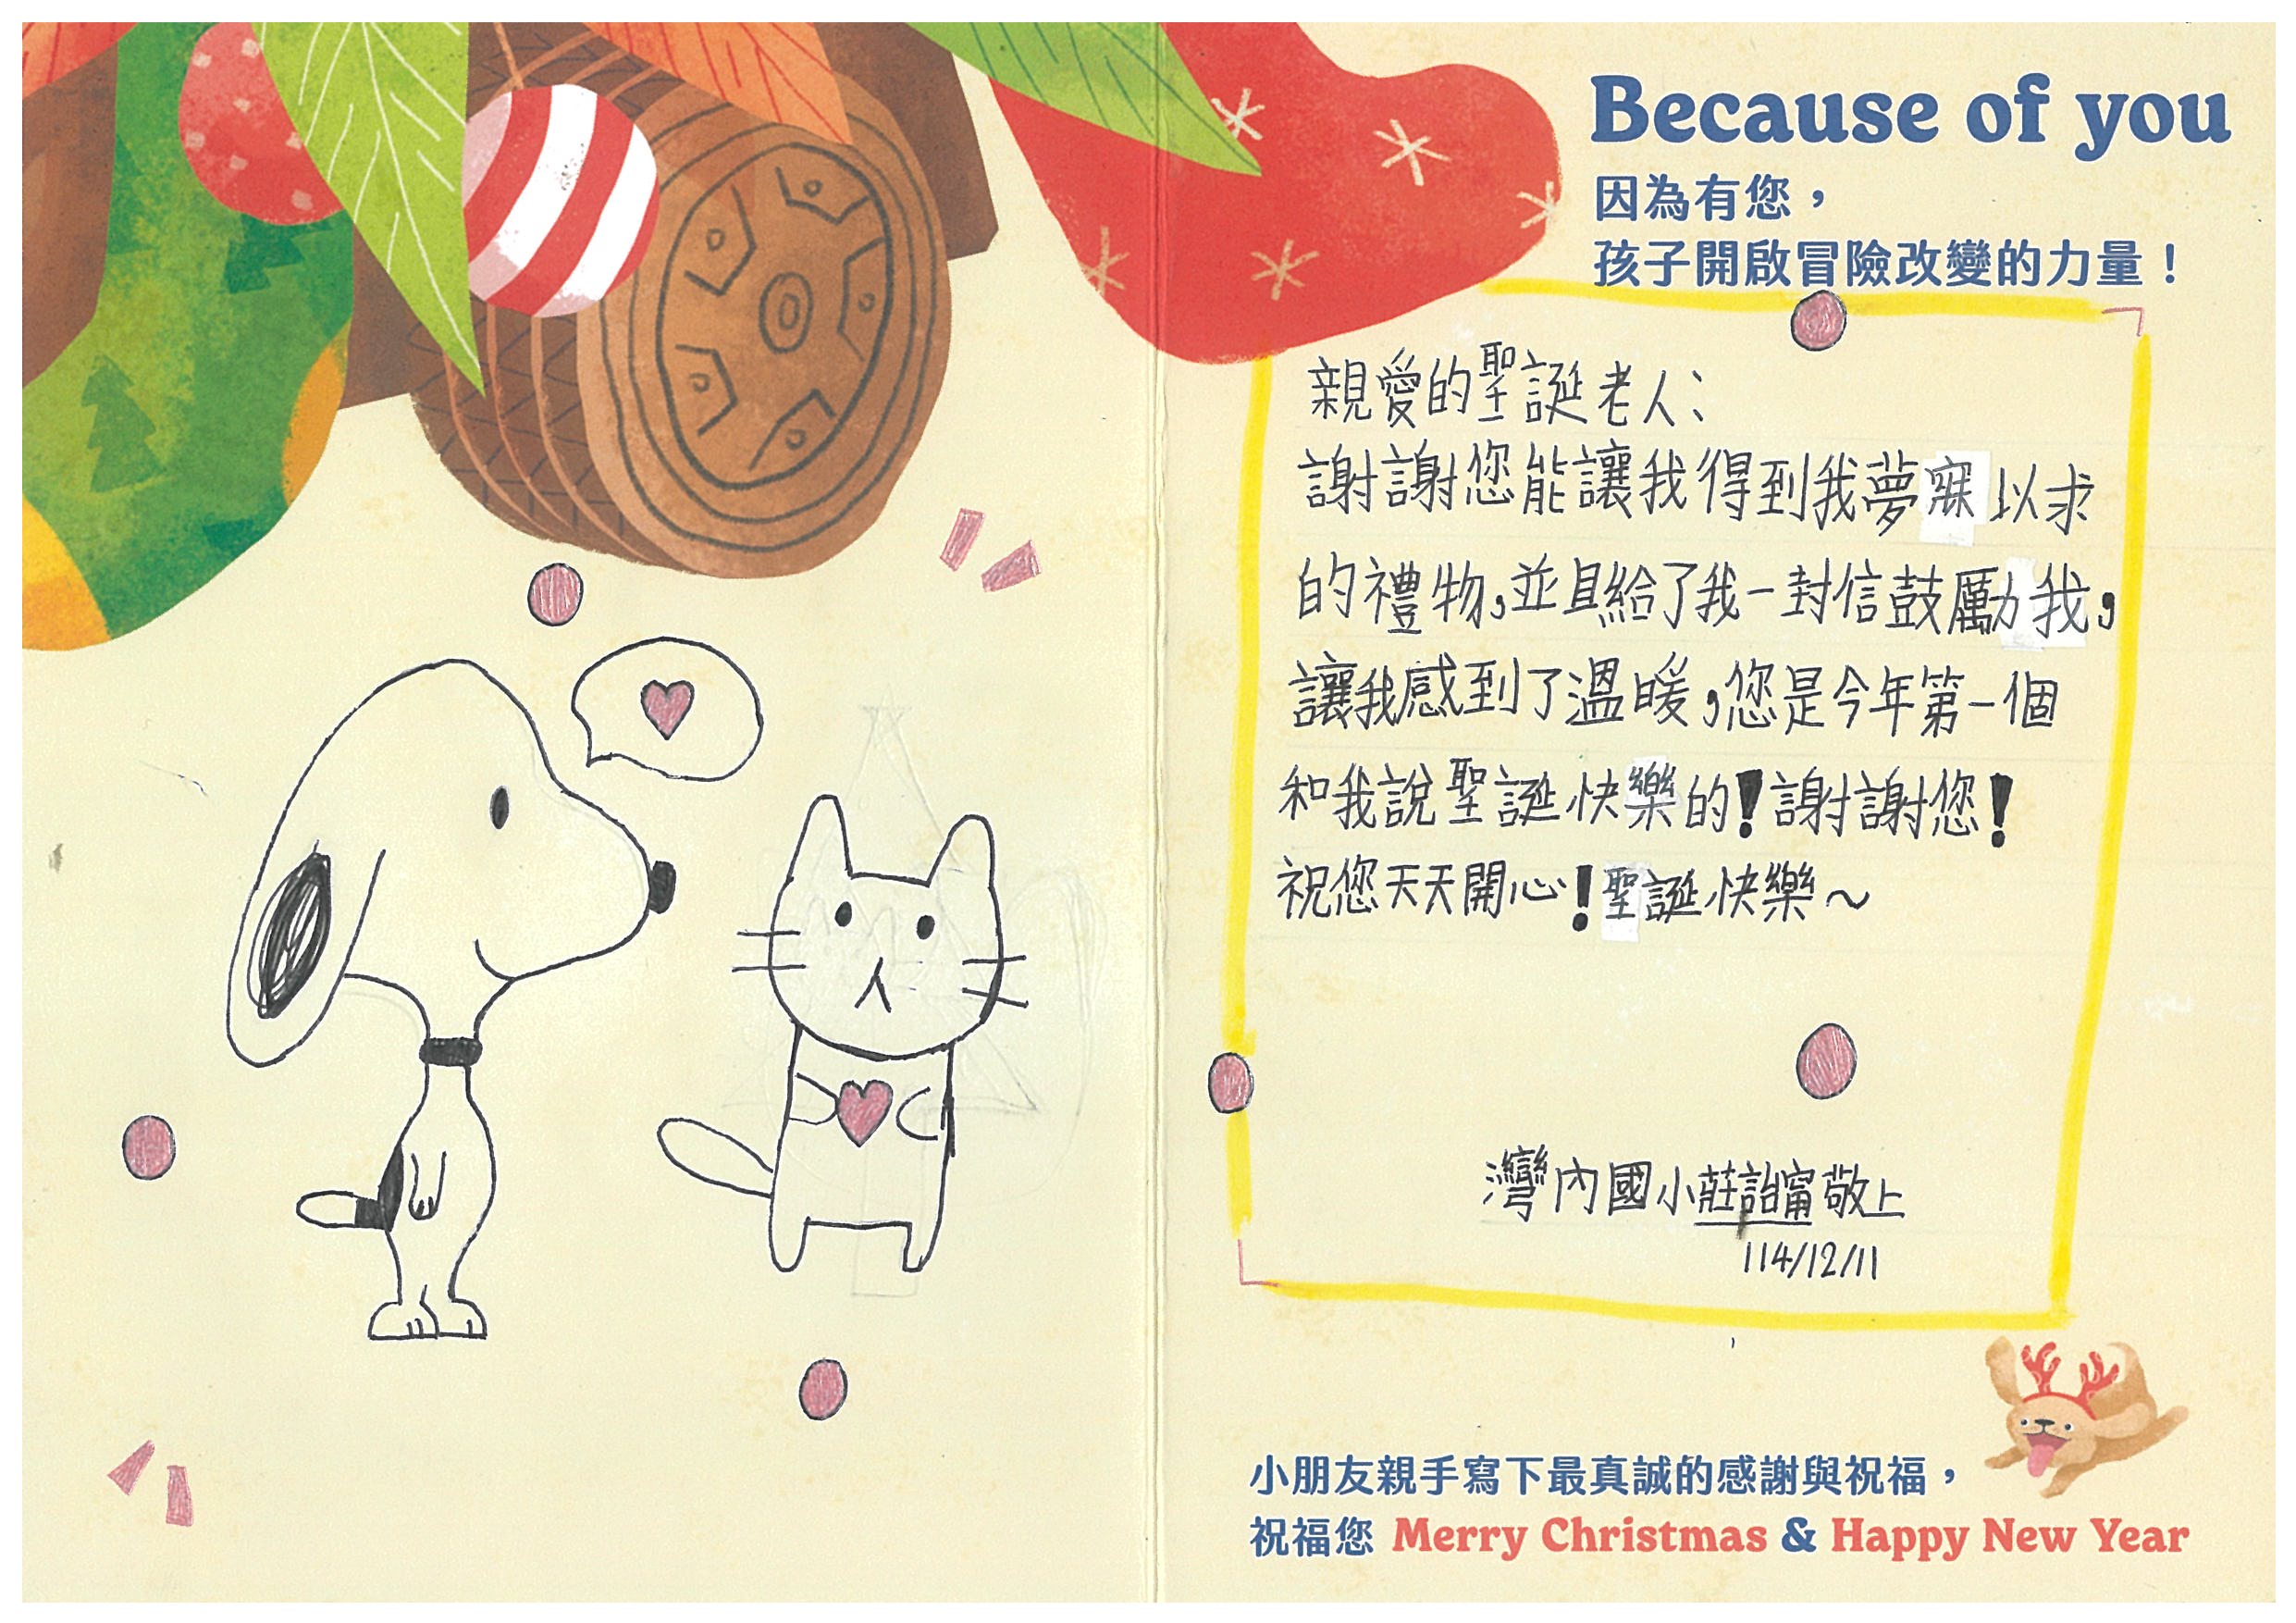 Because of you
因為有您，
孩子開啟冒險改變的力量！
親愛的聖誕老人：
謝謝您能讓我得到我夢寐以求
的禮物，並且給了我一封信鼓勵我，
讓我感到了溫暖，您是今年第一個
和我說聖誕快樂的！謝謝您！
祝您天天開心！聖誕快樂～
灣內國小莊詒甯敬上
114/12/11
小朋友親手寫下最真誠的感謝與祝福，
祝福您 Merry Christmas & Happy New Year